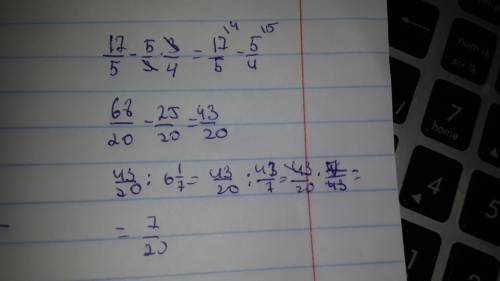 17/5 - 5/3 · 3/4 = 17/5 \4 - 5/4 \5
68/20 - 25/20 = 43/20
43/20 : 6 1/7 = 43/20 : 43/7 = 43/20 · 7/43 =
= 7/20
num lk
scr lk
7
home
4